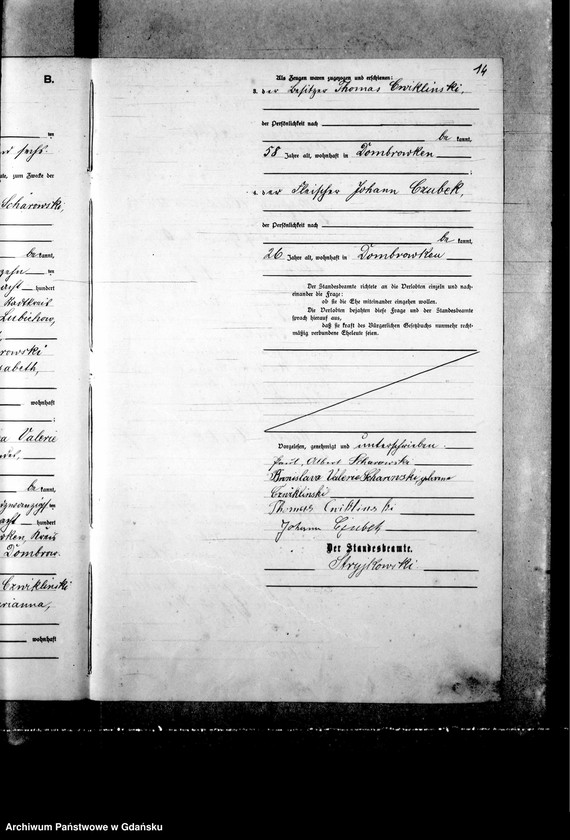 B.
ten
und sechs.
te, zum Zwecke der
Scharowski,
be kannt,
zehn ten
acht hundert
Stadtkreis
Lubichow,
rowski
sabeth,
wohnhaft
a Valerie
be kannt,
dzwanzigsten
acht hundert
ken, Kreis
Dombrow-
Czwiklinski
rianna,
wohnhaft
14
Als Zeugen waren zugezogen und erschienen:
3. der Besitzer Thomas Cwiklinski,
der Persönlichkeit nach
be kannt,
58 Jahre alt, wohnhaft in Dombrowken
;
4. der Fleischer Johann Czubek,
der Persönlichkeit nach
be kannt,
26 Jahre alt, wohnhaft in Dombrowken
Der Standesbeamte richtete an die Verlobten einzeln und nach-
einander die Frage:
ob sie die Ehe miteinander eingehen wollen.
Die Verlobten bejahten diese Frage und der Standesbeamte
sprach hierauf aus,
daß sie kraft des Bürgerlichen Gesetzbuchs nunmehr recht-
mäßig verbundene Eheleute seien.
Vorgelesen, genehmigt und unterschrieben
Paul Albert Scharowski
Bronislava Valerie Scharowski geborene
Czwiklinski
Thomas Cwiklinski
Johann Czubek
Der Standesbeamte.
Stryjkowski
Archiwum Państwowe w Gdańsku